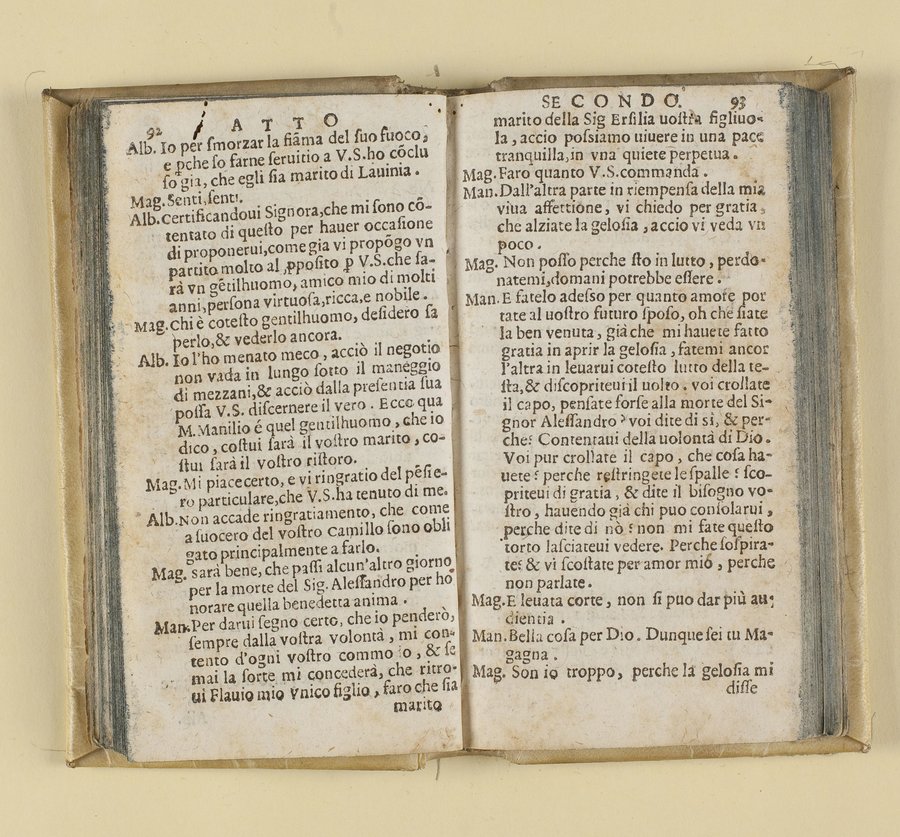 92 ATTO
Alb. Io per ſmorzar la fiãma del ſuo fuoco,
e ꝑche ſo farne ſeruitio a V.S.ho cõclu
ſo gia, che egli ſia marito di Lauinia.
Mag. Senti, ſenti.
Alb. Certificandoui Signora, che mi ſono cõ-
tentato di queſto per hauer occaſione
di proponerui, come gia vi propõgo vn
partito molto al ꝓpoſito ꝑ V.S. che ſa-
rà vn gẽtilhuomo, amico mio di molti
anni, perſona virtuoſa, ricca, e nobile.
Mag. Chi è coteſto gentilhuomo, deſidero ſa
perlo, & vederlo ancora.
Alb. Io l'ho menato meco, acciò il negotio
non vada in lungo ſotto il maneggio
di mezzani, & acciò dalla preſentia ſua
poſſa V.S. diſcernere il vero. Ecco qua
M. Manilio é quel gentilhuomo, che io
dico, coſtui ſarà il voſtro marito, co-
ſtui ſarà il voſtro riſtoro.
Mag. Mi piace certo, e vi ringratio del pẽſie-
ro particulare, che V.S. ha tenuto di me.
Alb. Non accade ringratiamento, che come
a ſuocero del voſtro Camillo ſono obli
gato principalmente a farlo.
Mag. Sarà bene, che paſſi alcun'altro giorno
per la morte del Sig. Aleſſandro per ho
norare quella benedetta anima.
Man. Per darui ſegno certo, che io penderò,
ſempre dalla voſtra volontà, mi con-
tento d'ogni voſtro commo io, & ſe
mai la ſorte mi concederà, che ritro-
ui Flauio mio vnico figlio, faro che ſia
marito
SECONDO. 93
marito della Sig Erſilia uoſtra figliuo-
la, accio poſsiamo uiuere in una pace
tranquilla, in vna quiete perpetua.
Mag. Faro quanto V.S. commanda.
Man. Dall'altra parte in riempenſa della mia
viua affettione, vi chiedo per gratia,
che alziate la geloſia, accio vi veda vn
poco.
Mag. Non poſſo perche ſto in lutto, perdo-
natemi, domani potrebbe eſſere.
Man. E fatelo adeſſo per quanto amore por
tate al uoſtro futuro ſpoſo, oh che ſiate
la ben venuta, già che mi hauete fatto
gratia in aprir la geloſia, fatemi ancor
l'altra in leuarui coteſto lutto della te-
ſta, & diſcopriteui il uolto. voi crollate
il capo, penſate forſe alla morte del Si-
gnor Aleſſandro? voi dite di sì, & per-
che? Contentaui della uolontà di Dio.
Voi pur crollate il capo, che coſa ha-
uete? perche reſtringete le ſpalle? ſco-
priteui di gratia, & dite il biſogno vo-
ſtro, hauendo già chi puo conſolarui,
perche dite di nò? non mi fate queſto
torto laſciateui vedere. Perche ſoſpira-
te? & vi ſcoſtate per amor mio, perche
non parlate.
Mag. E leuata corte, non ſi puo dar più au-
dientia.
Man. Bella coſa per Dio. Dunque ſei tu Ma-
gagna.
Mag. Son io troppo, perche la geloſia mi
diſſe